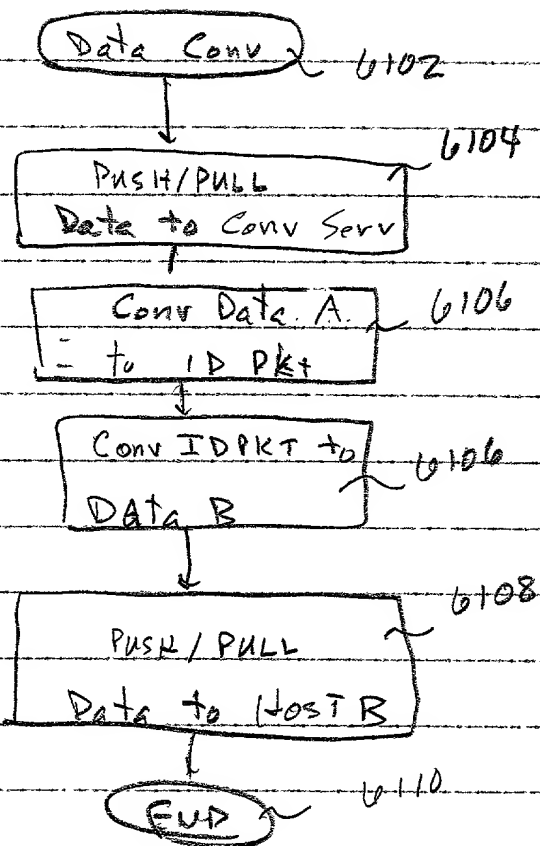 Data Conv
6102
6104
PUSH/PULL
Data to Conv Serv
Conv Data. A.
6106
to ID Pkt
Conv IDPKT to
6106
Data B
6108
PUSH/PULL
Data to HOST B
6110
END